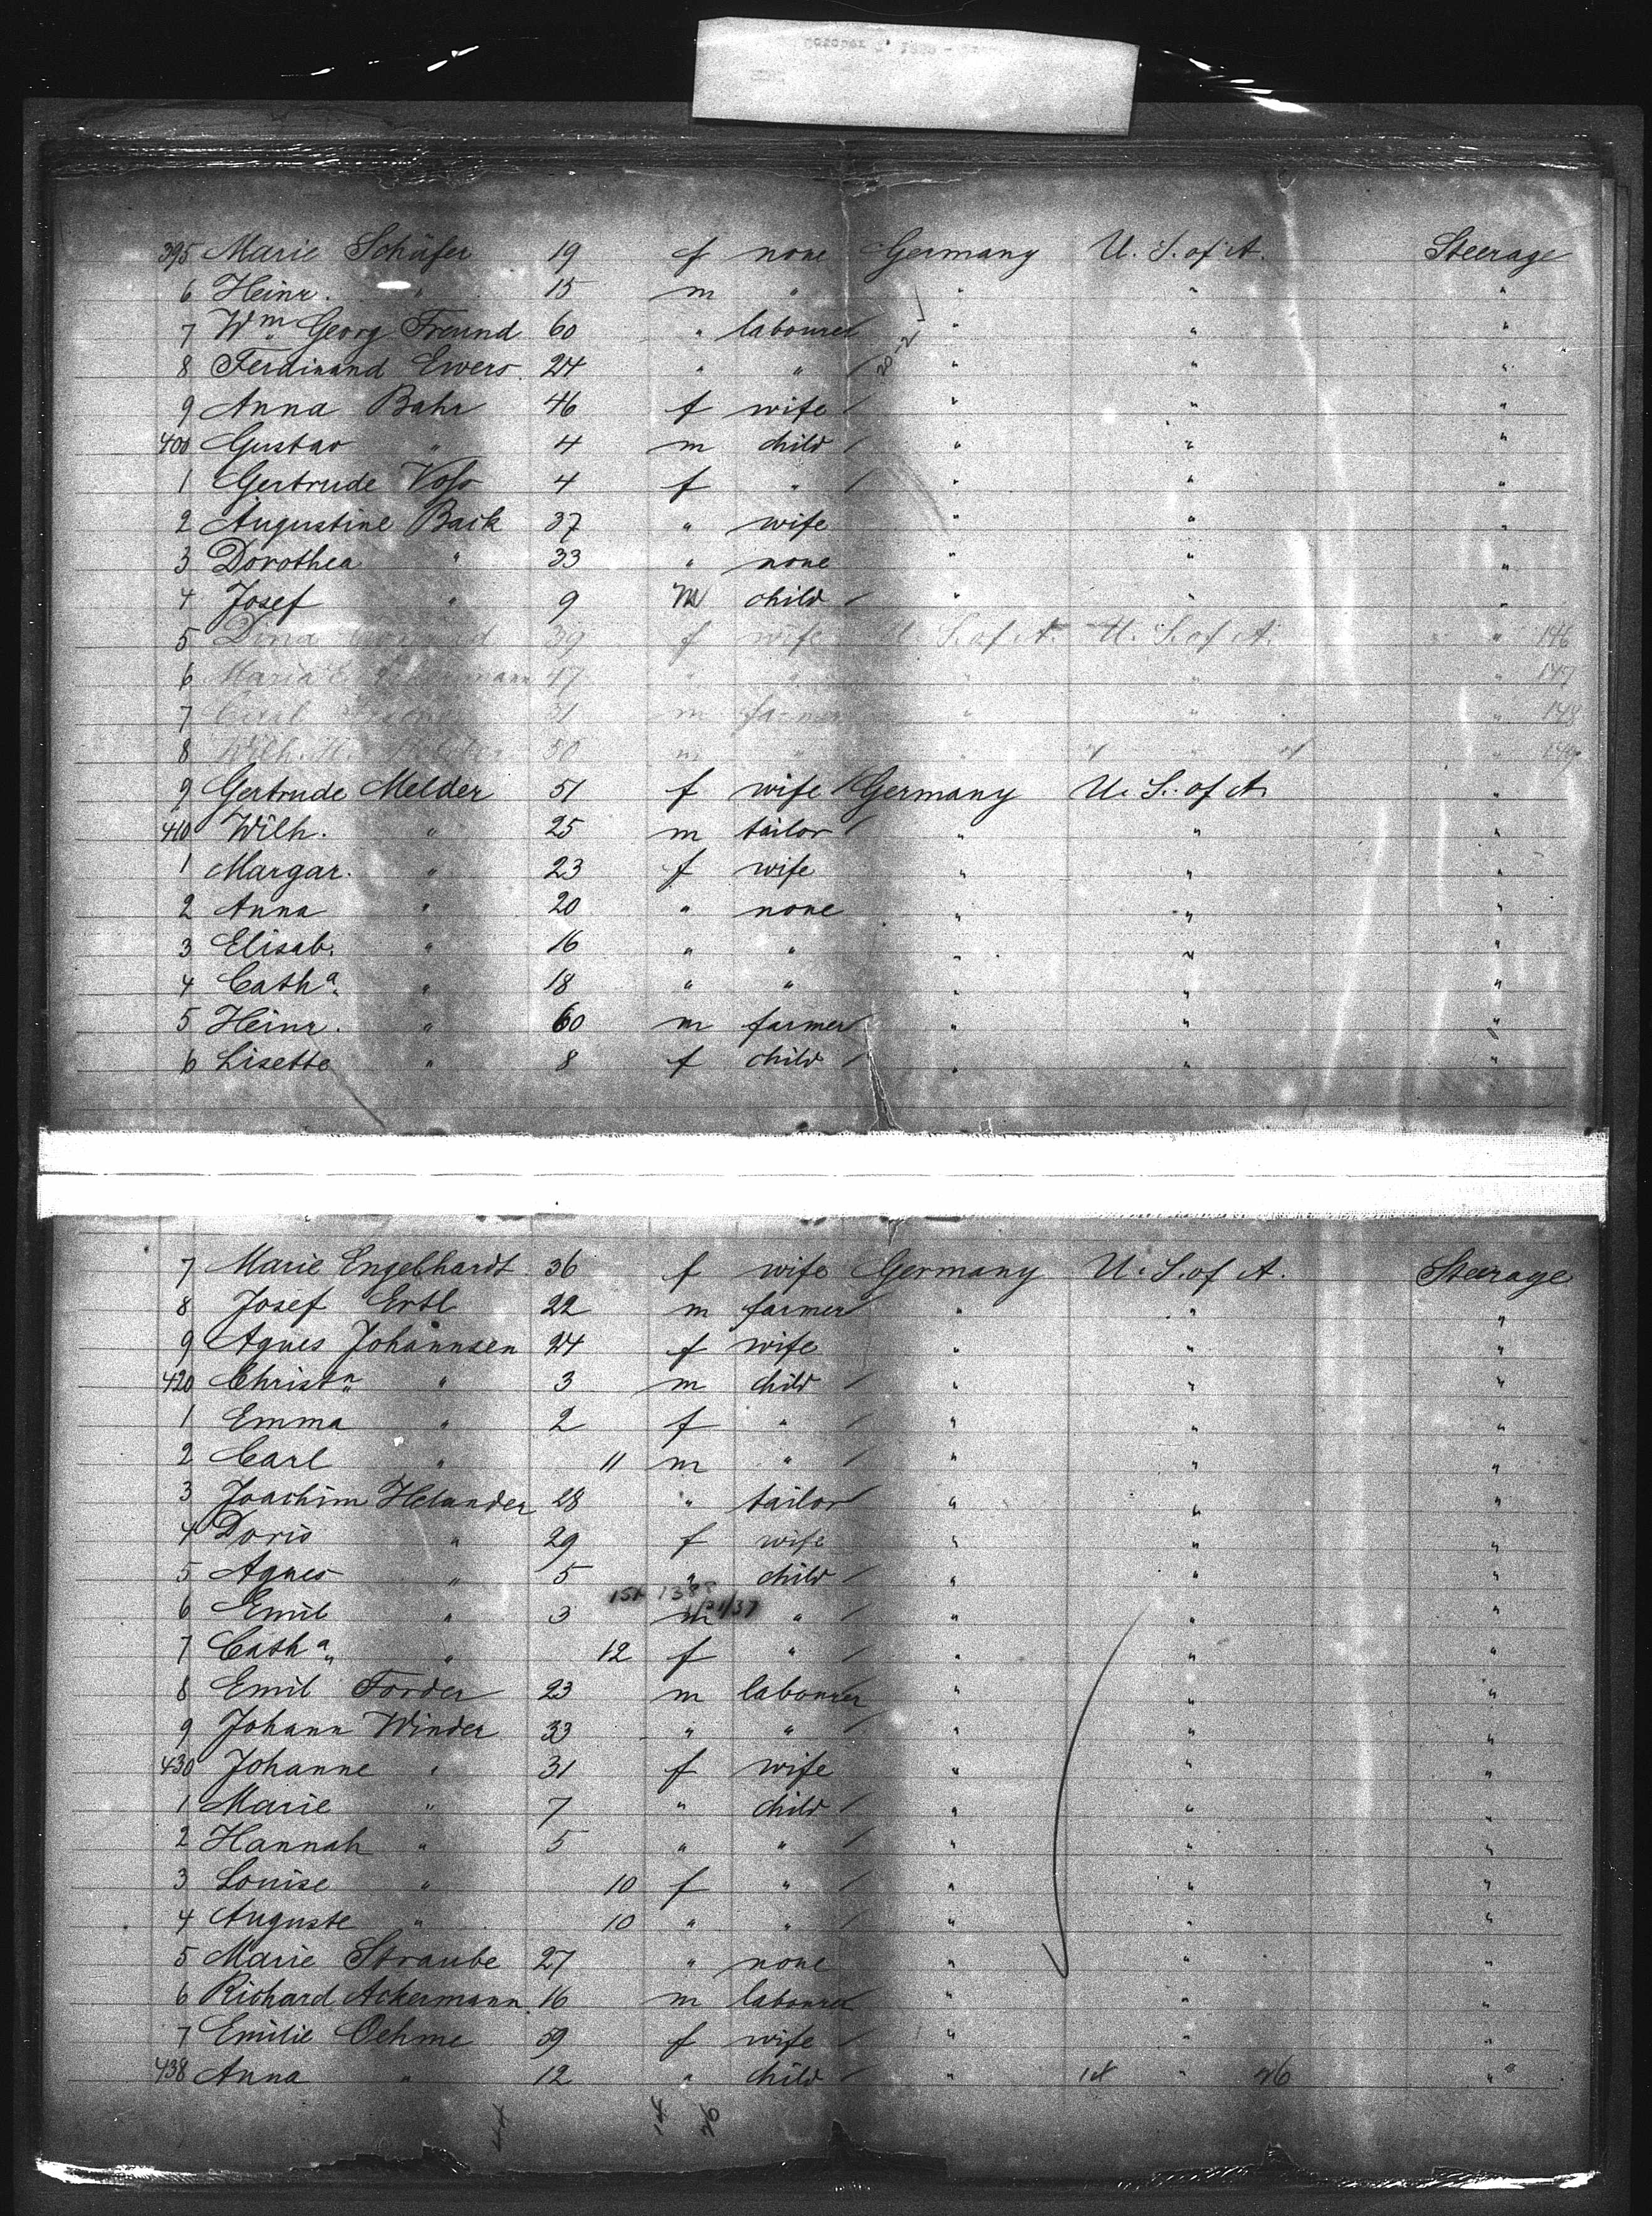 395 Marie Schäfer 19 f none Germany U. S. of A. Steerage
6 Heinr. " 15 m " " " "
7 Wm Georg Freund 60 " labourer " " "
8 Ferdinand Ewers 24 " " " " "
9 Anna Bahr 46 f wife " " "
400 Gustav " 4 m child " " "
1 Gertrude Voss 4 f " " " "
2 Augustine Back 37 " wife " " "
3 Dorothea " 33 " none " " "
4 Josef " 9 m child " " "
5 Dina 39 f wife U. S. of A. U. S. of A. " 146
6 Maria 47 " " " " " 147
7 Carl 31 m farmer " " " 148
8 Wilh. 50 m " " " " 149
9 Gertrude Melder 51 f wife Germany U. S. of A. "
410 Wilh. " 25 m tailor " " "
1 Margar. " 23 f wife " " "
2 Anna " 20 " none " " "
3 Elisab. " 16 " " " " "
4 Catha. " 18 " " " " "
5 Heinr. " 60 m farmer " " "
6 Lisette " 8 f child " " "
7 Marie Engelhardt 36 f wife Germany U. S. of A. Steerage
8 Josef Ertl 22 m farmer " " "
9 Agnes Johannsen 24 f wife " " "
420 Christn " 3 m child " " "
1 Emma " 2 f " " " "
2 Carl " 11 m " " " "
3 Joachim Helander 28 " tailor " " "
4 Doris " 29 f wife " " "
5 Agnes " 5 " child " " "
6 Emil " 3 m " " " "
7 Catha " 12 f " " " "
8 Emil Forder 23 m labourer " " "
9 Johann Winder 33 " " " " "
430 Johanne " 31 f wife " " "
1 Marie " 7 " child " " "
2 Hannah " 5 " " " " "
3 Louise " 10 f " " " "
4 Auguste " 10 " " " " "
5 Marie Straube 27 " none " " "
6 Richard Ackermann 16 m labourer " " "
7 Emilie Oehme 59 f wife " " "
438 Anna " 12 " child " " "